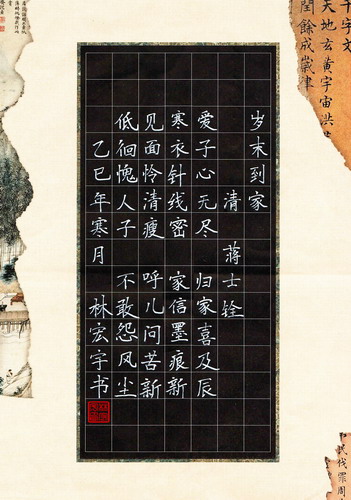 千字文
天地玄黄宇宙洪
閏餘成歲律
岁末到家
清 蒋士铨
爱子心无尽 归家喜及辰
寒衣针线密 家信墨痕新
见面怜清瘦 呼儿问苦新
低徊愧人子 不敢怨风尘
乙巳年寒月 林宏宇书
民伐罪周